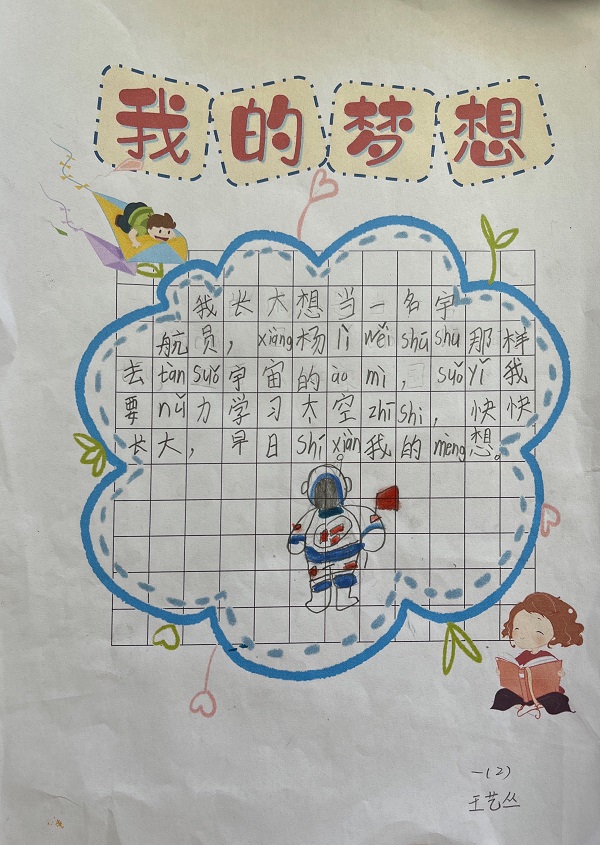 我的梦想
我长大想当一名宇
航员，xiàng杨lì wěi shū shu那样
去tàn suǒ宇宙的ào mì，suǒ yǐ我
要nǔ力学习太空zhī shi，快快
长大，早日shí xiàn我的mèng想。
一(2)
王艺丛